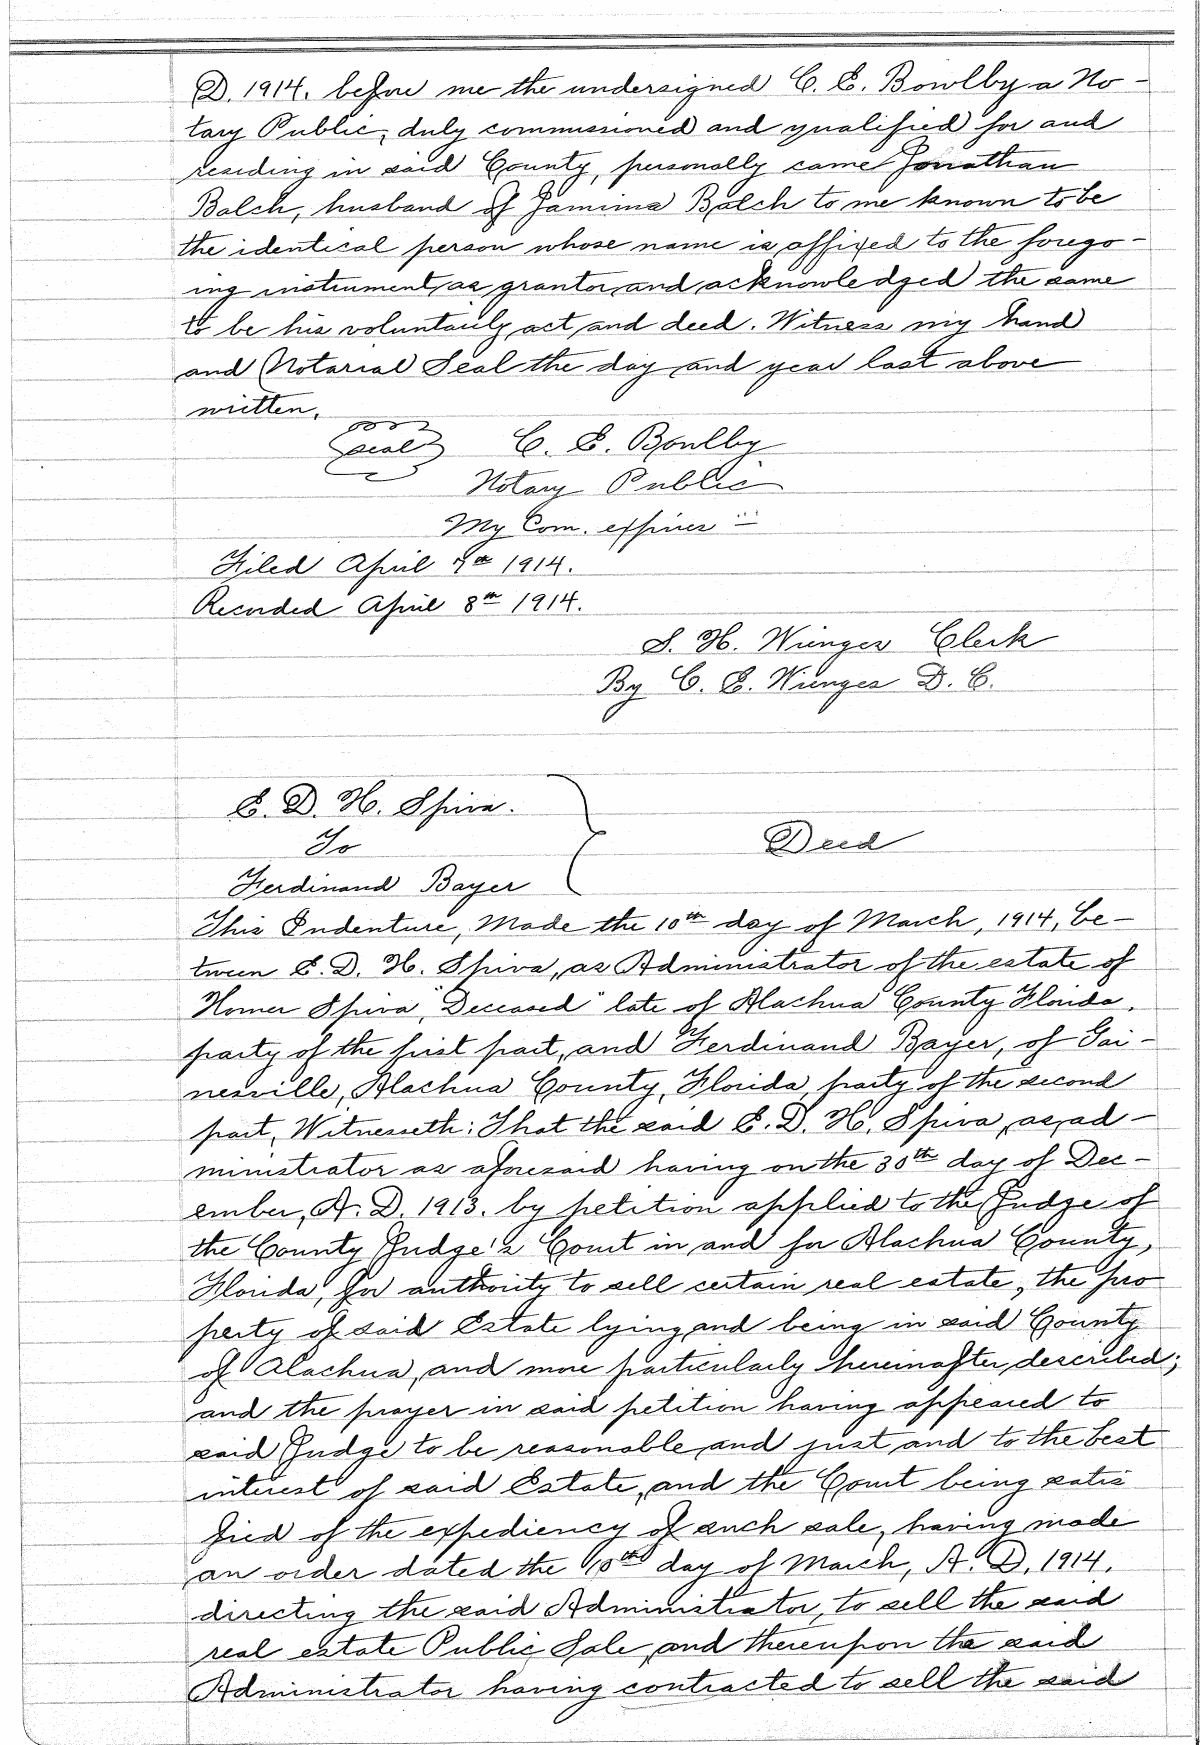 D. 1914. before me the undersigned C. E. Bowlby a No-
tary Public, duly commissioned and qualified for and
residing in said County, personally came Jonathan
Balch, husband of Jamima Balch to me known to be
the identical person whose name is affixed to the forego-
ing instrument, as grantor, and acknowledged the same
to be his voluntarily act, and deed. Witness my hand
and Notarial Seal the day and year last above
written.
seal C. E. Bowlby
Notary Public
My Com. expires
Filed April 7th 1914.
Recorded April 8th 1914.
S. H. Wienges Clerk
By C. E. Wienges D. C.
E. D. H. Spiva.
To
Deed
Ferdinand Bayer
This Indenture, Made the 10th day of March, 1914, be-
tween E. D. H. Spiva, as Administrator of the estate of
Homer Spiva, "Deceased" late of Alachua County Florida,
party of the first part, and Ferdinand Bayer, of Gai-
nesville, Alachua County, Florida, party of the second
part, Witnesseth: That the said E. D. H. Spiva, as, ad-
ministrator as aforesaid having on the 30th day of Dec-
ember, A. D. 1913. by petition applied to the Judge of
the County Judge's Court in and for Alachua County,
Florida, for authority to sell certain real estate, the pro
perty of said Estate lying and being in said County
of Alachua, and more particularly hereinafter, described;
and the prayer in said petition having appeared to
said Judge to be reasonable and just, and to the best
interest of said Estate, and the Court being satis
fied of the expediency of such sale, having made
an order dated the 10th day of March, A. D. 1914.
directing the said Administrator, to sell the said
real estate Public Sale, and thereupon the said
Administrator having contracted to sell the said